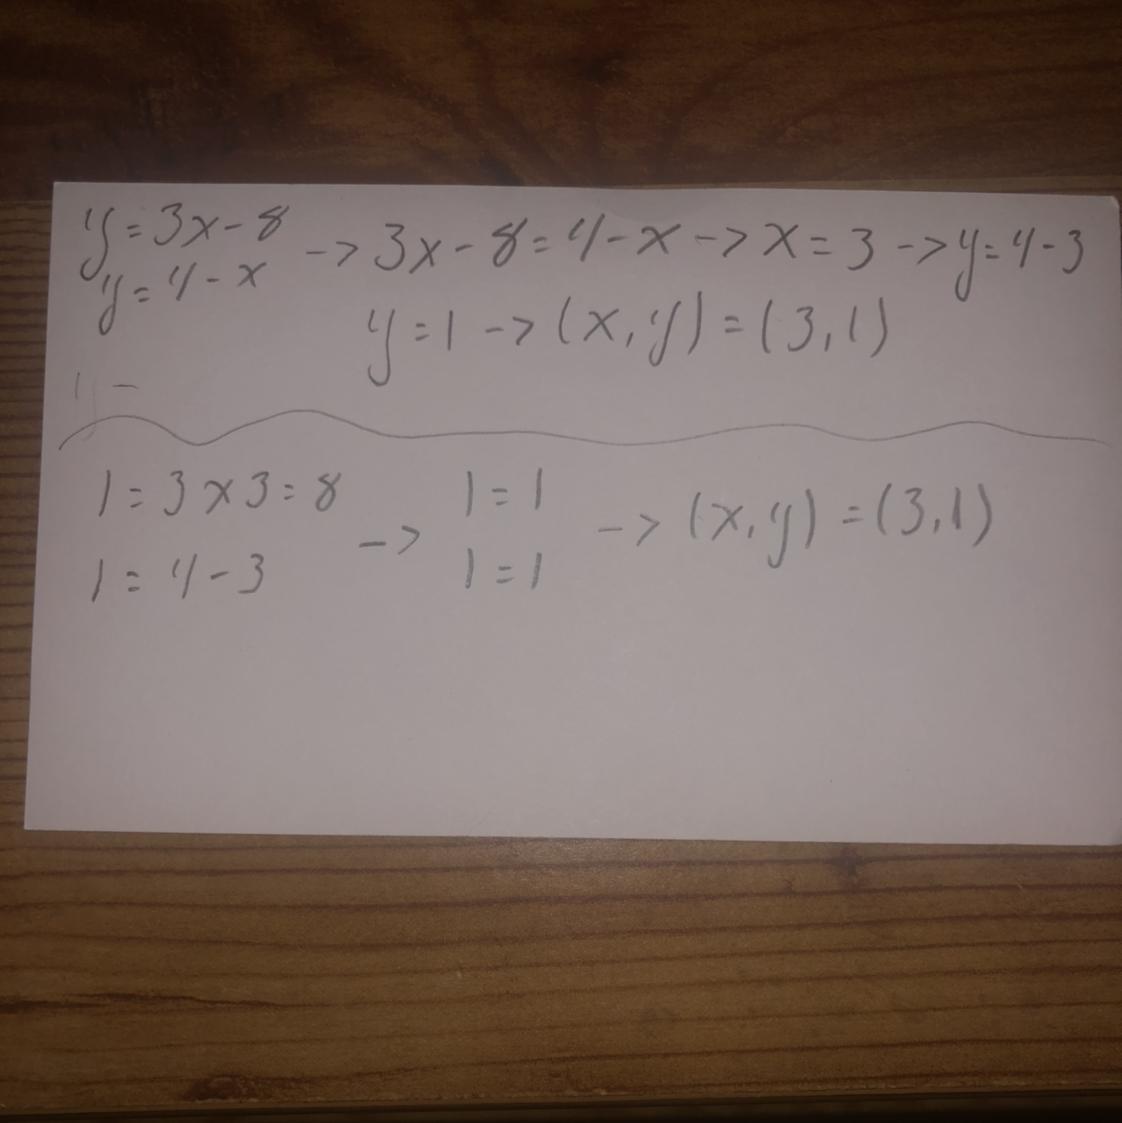 y=3x-8
y=4-x
-> 3x-8=4-x -> x=3 -> y=4-3
y=1 -> (x,y)=(3,1)
1 -
1=3x3=8
1=4-3
->
1=1
1=1
-> (x,y)=(3,1)